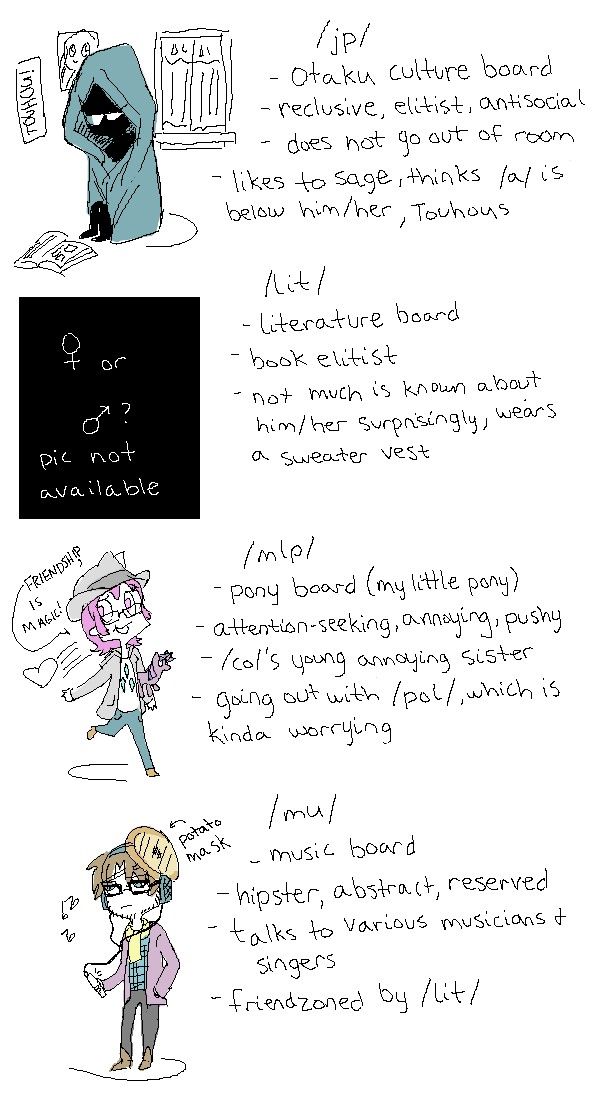 /jp/
- Otaku culture board
- reclusive, elitist, antisocial
- does not go out of room
- likes to sage, thinks /a/ is
below him/her, Touhous
TOUHOU!
/lit/
- literature board
- book elitist
- not much is known about
him/her surprisingly, wears
a sweater vest
♀ or
♂?
pic not
available
/mlp/
- pony board (my little pony)
- attention-seeking, annoying, pushy
- /co/'s young annoying sister
- going out with /pol/, which is
kinda worrying
FRIENDSHIP
IS
MAGIC!
/mu/
- music board
- hipster, abstract, reserved
- talks to various musicians &
singers
- friendzoned by /lit/
potato
mask